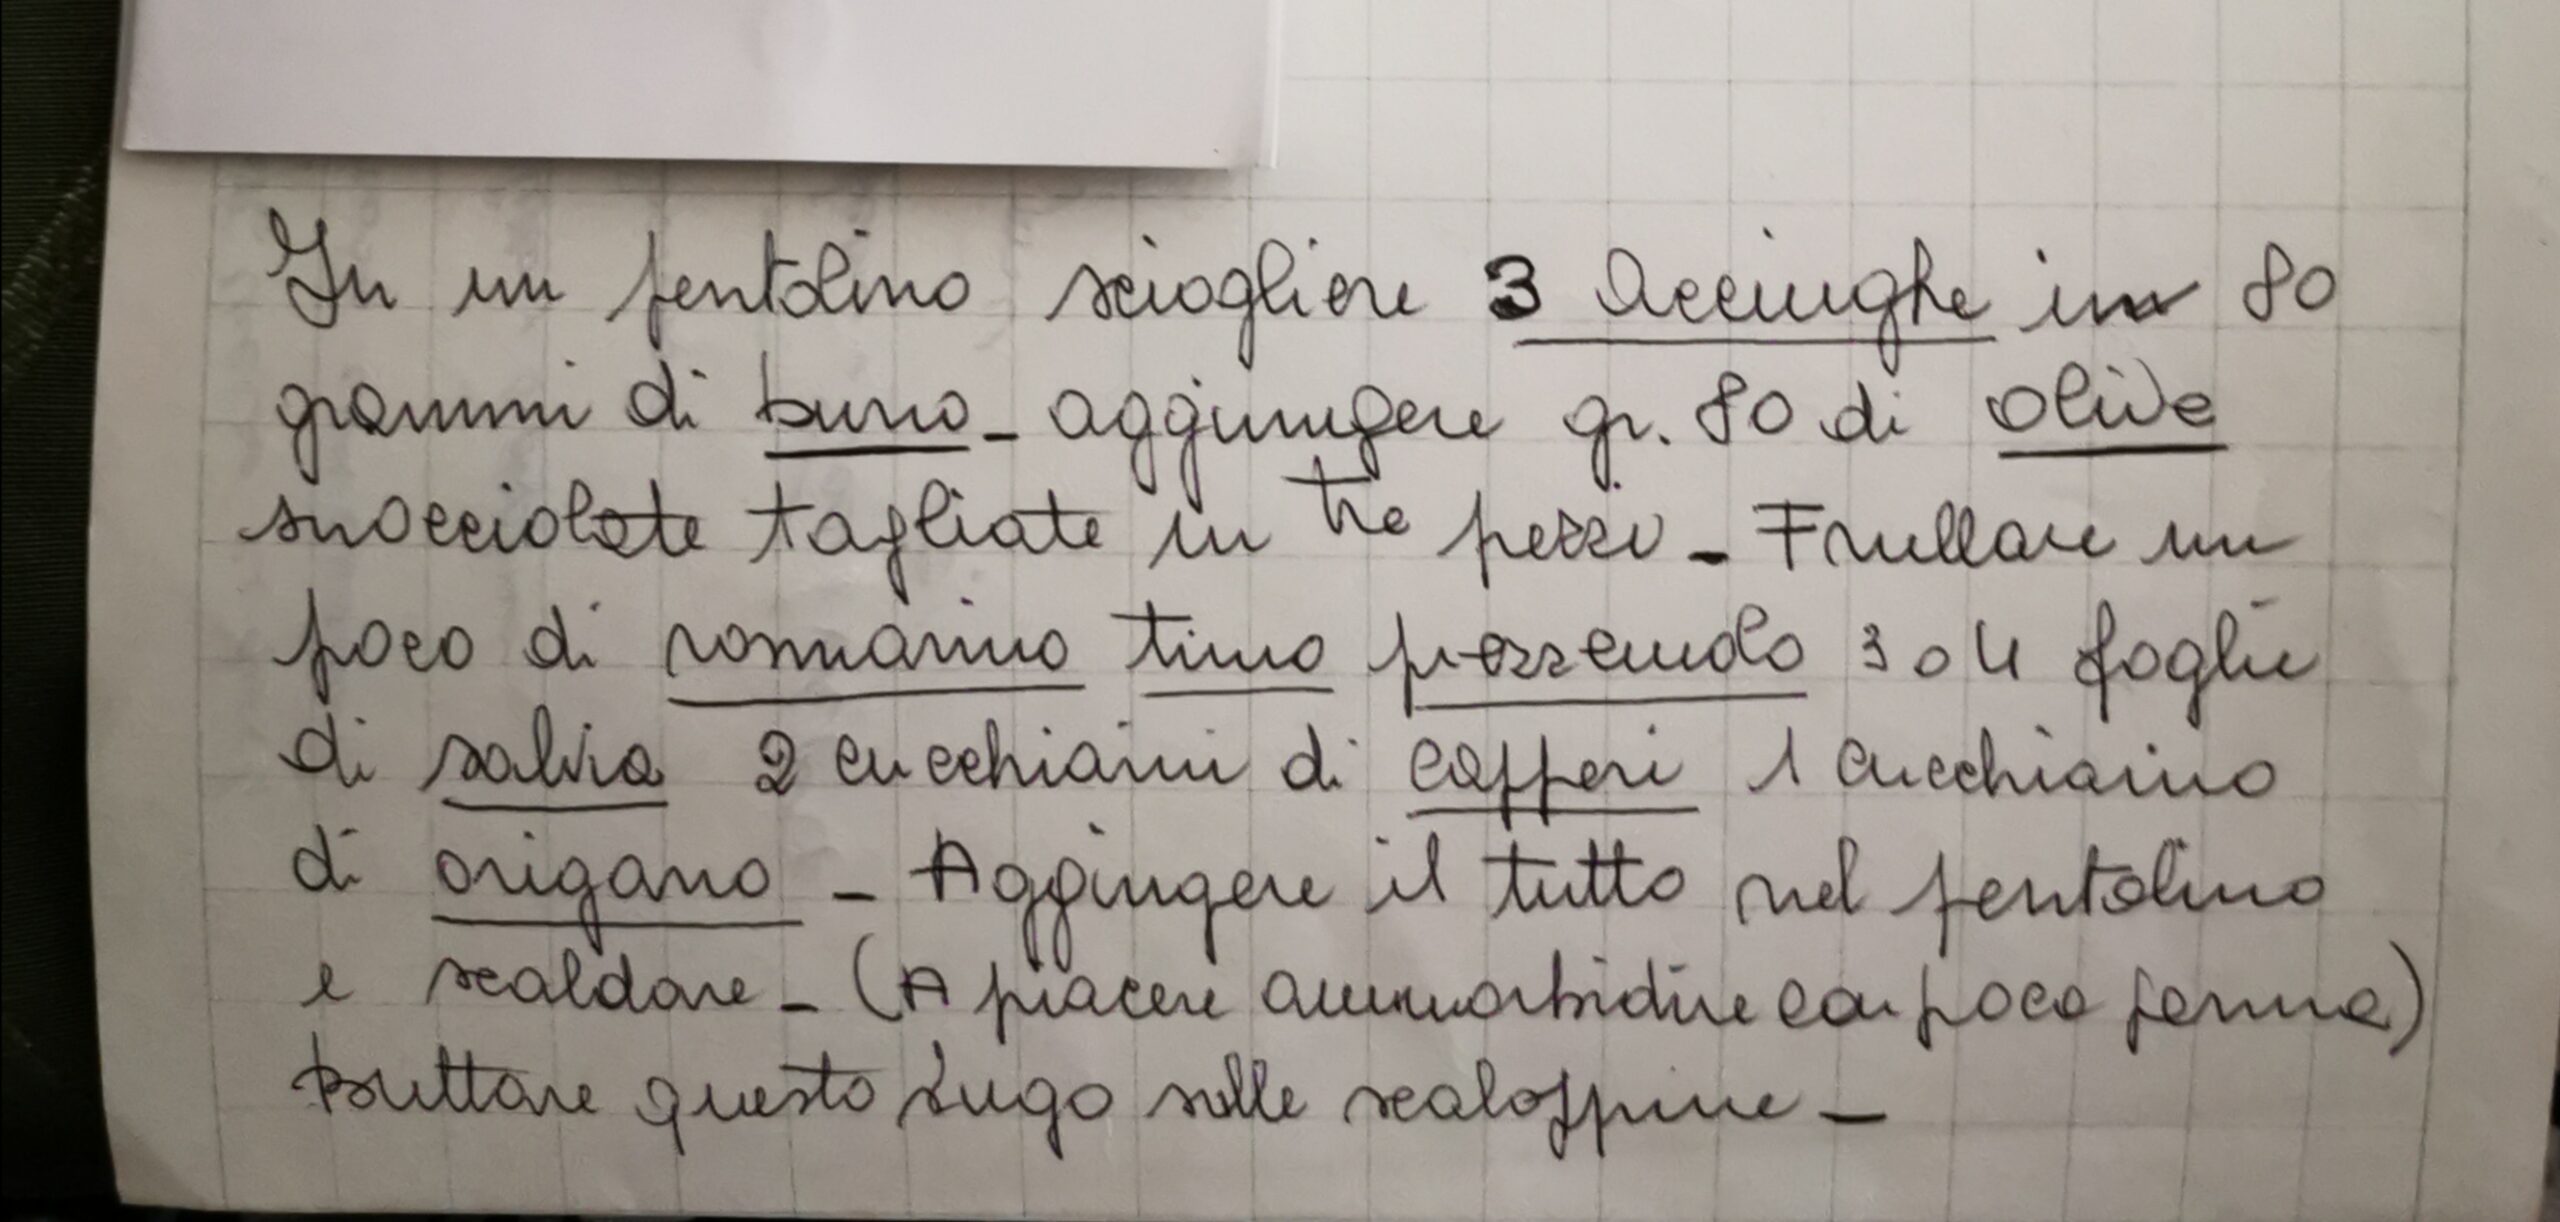 In un pentolino sciogliere 3 Acciughe in 80
grammi di burro - aggiungere gr. 80 di olive
snocciolate tagliate in tre pezzi - Frullare un
poco di rosmarino timo prezzemolo 3 o 4 foglie
di salvia 2 cucchiaini di capperi 1 cucchiaino
di origano - Aggiungere il tutto nel pentolino
e scaldare - (A piacere ammorbidire con poca panna)
Buttare questo sugo sulle scaloppine -